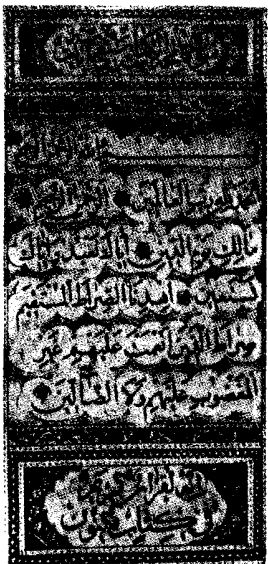 الرحمن الرحيم
الحمد لله رب العالمين الرحمن الرحيم
مالك يوم الدين اياك نعبد واياك
نستعين اهدنا الصراط المستقيم
صراط الذين انعمت عليهم غير
المغضوب عليهم ولا الضالين
انه لقرآن كريم في
كتاب مكنون